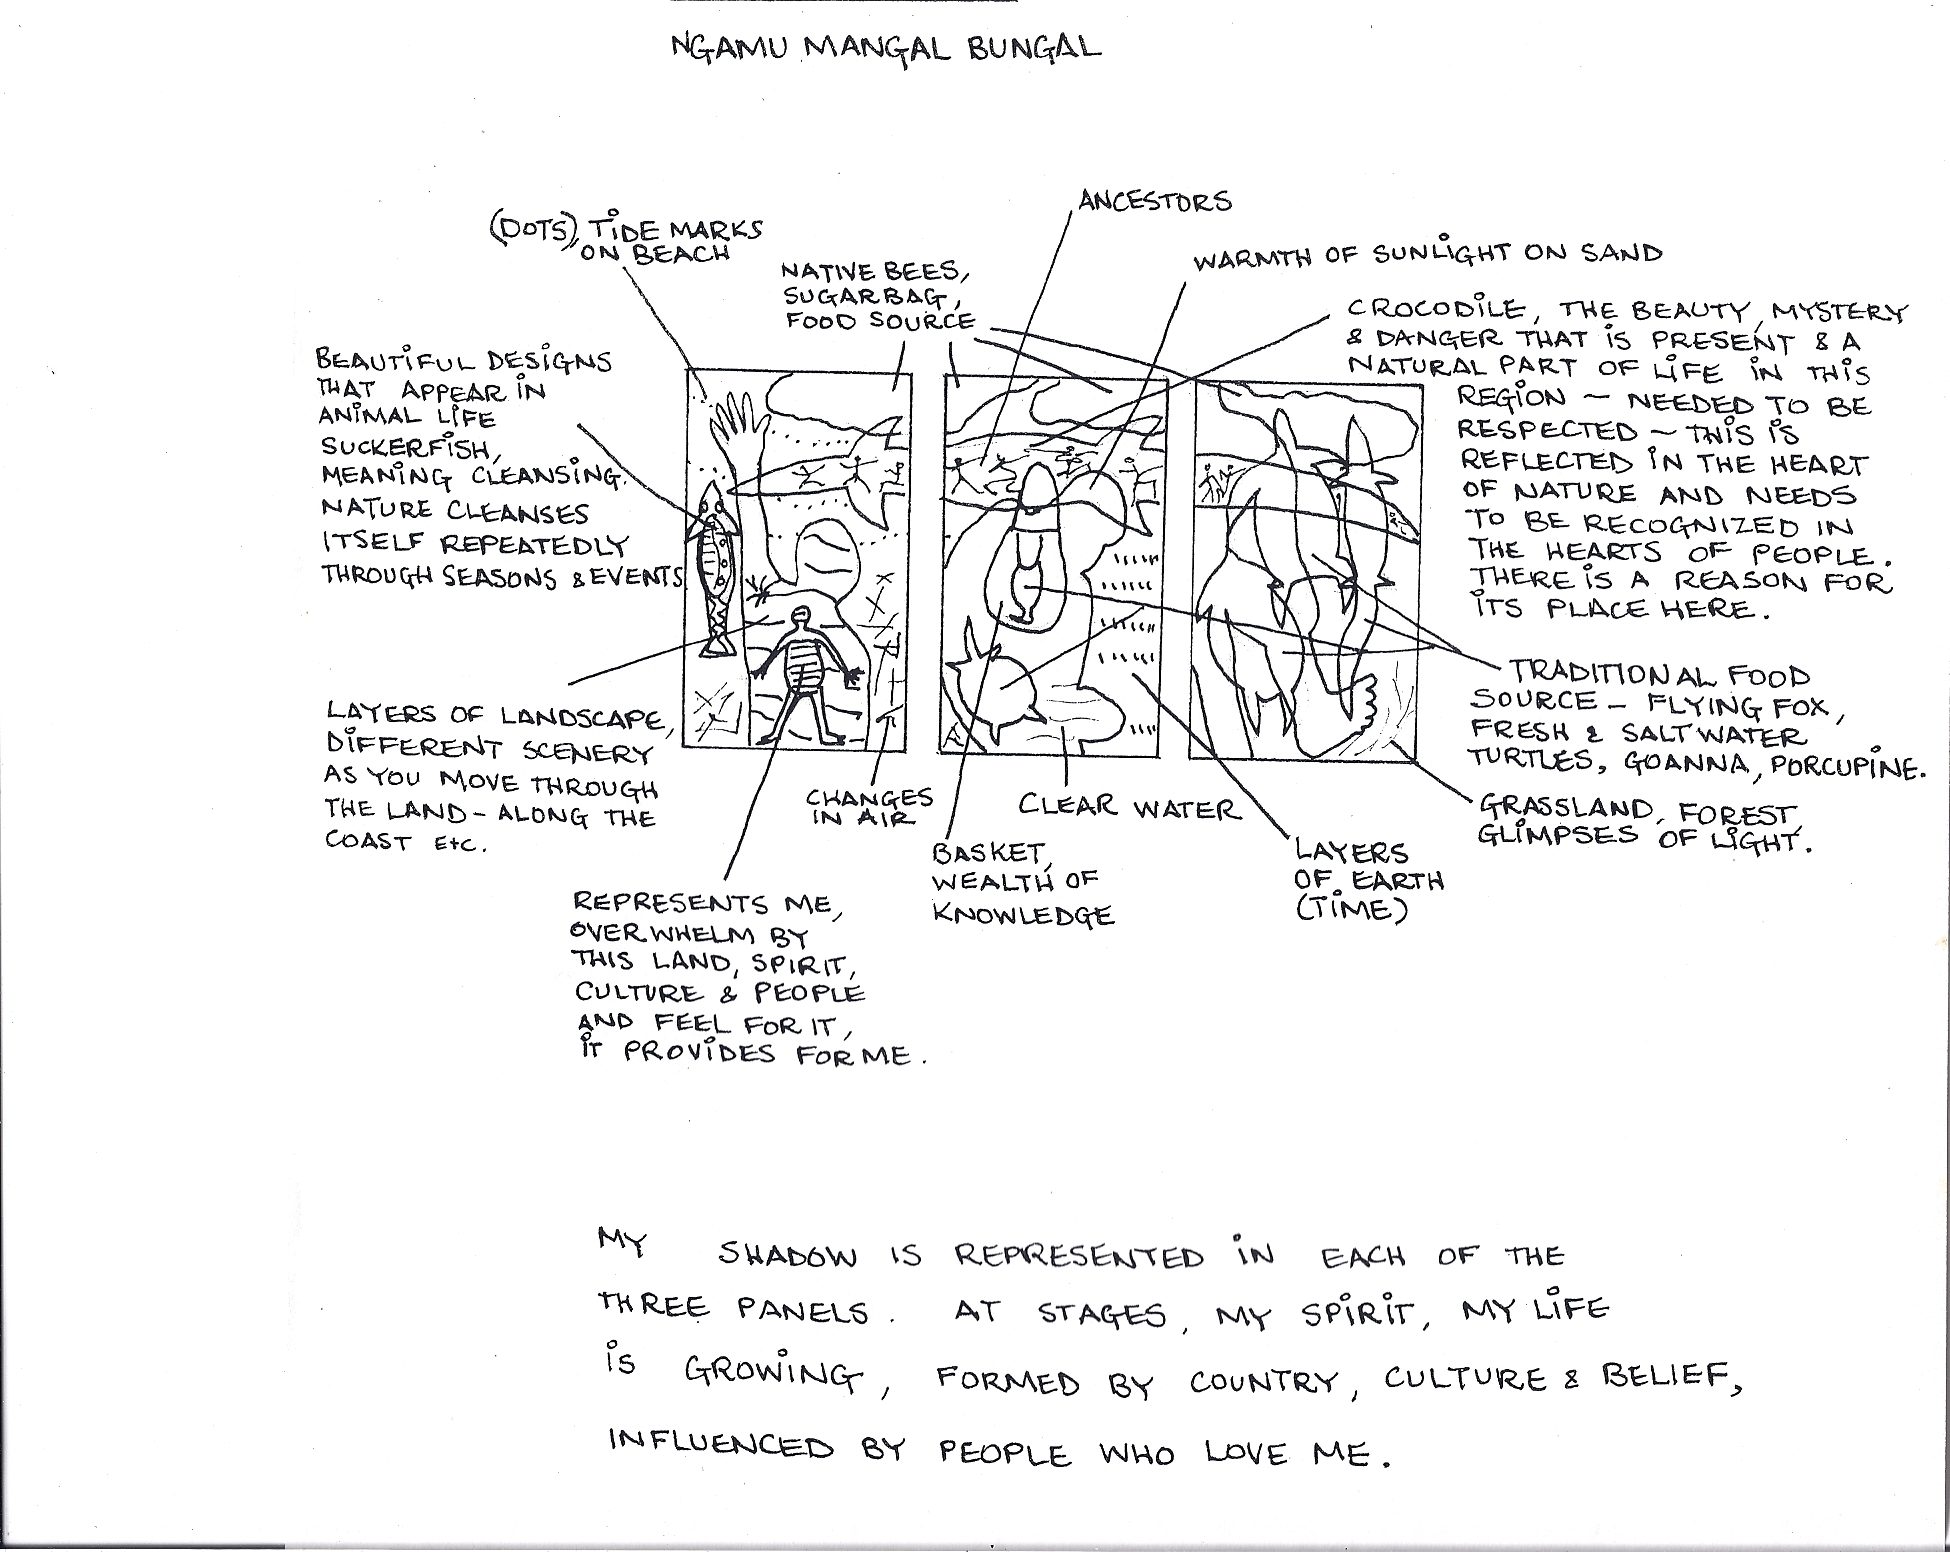 NGAMU MANGAL BUNGAL
(DOTS), TIDE MARKS
ON BEACH
NATIVE BEES,
SUGARBAG,
FOOD SOURCE
ANCESTORS
WARMTH OF SUNLIGHT ON SAND
CROCODILE, THE BEAUTY, MYSTERY
& DANGER THAT IS PRESENT & A
NATURAL PART OF LIFE IN THIS
REGION ~ NEEDED TO BE
RESPECTED ~ THIS IS
REFLECTED IN THE HEART
OF NATURE AND NEEDS
TO BE RECOGNIZED IN
THE HEARTS OF PEOPLE.
THERE IS A REASON FOR
ITS PLACE HERE.
BEAUTIFUL DESIGNS
THAT APPEAR IN
ANIMAL LIFE
SUCKERFISH,
MEANING CLEANSING.
NATURE CLEANSES
ITSELF REPEATEDLY
THROUGH SEASONS & EVENTS
LAYERS OF LANDSCAPE,
DIFFERENT SCENERY
AS YOU MOVE THROUGH
THE LAND - ALONG THE
COAST Etc.
REPRESENTS ME,
OVERWHELM BY
THIS LAND, SPIRIT,
CULTURE & PEOPLE
AND FEEL FOR IT,
IT PROVIDES FOR ME.
CHANGES
IN AIR
BASKET,
WEALTH OF
KNOWLEDGE
CLEAR WATER
LAYERS
OF EARTH
(TIME)
TRADITIONAL FOOD
SOURCE - FLYING FOX,
FRESH & SALTWATER
TURTLES, GOANNA, PORCUPINE.
GRASSLAND, FOREST,
GLIMPSES OF LIGHT.
MY SHADOW IS REPRESENTED IN EACH OF THE
THREE PANELS. AT STAGES, MY SPIRIT, MY LIFE
IS GROWING, FORMED BY COUNTRY, CULTURE & BELIEF,
INFLUENCED BY PEOPLE WHO LOVE ME.